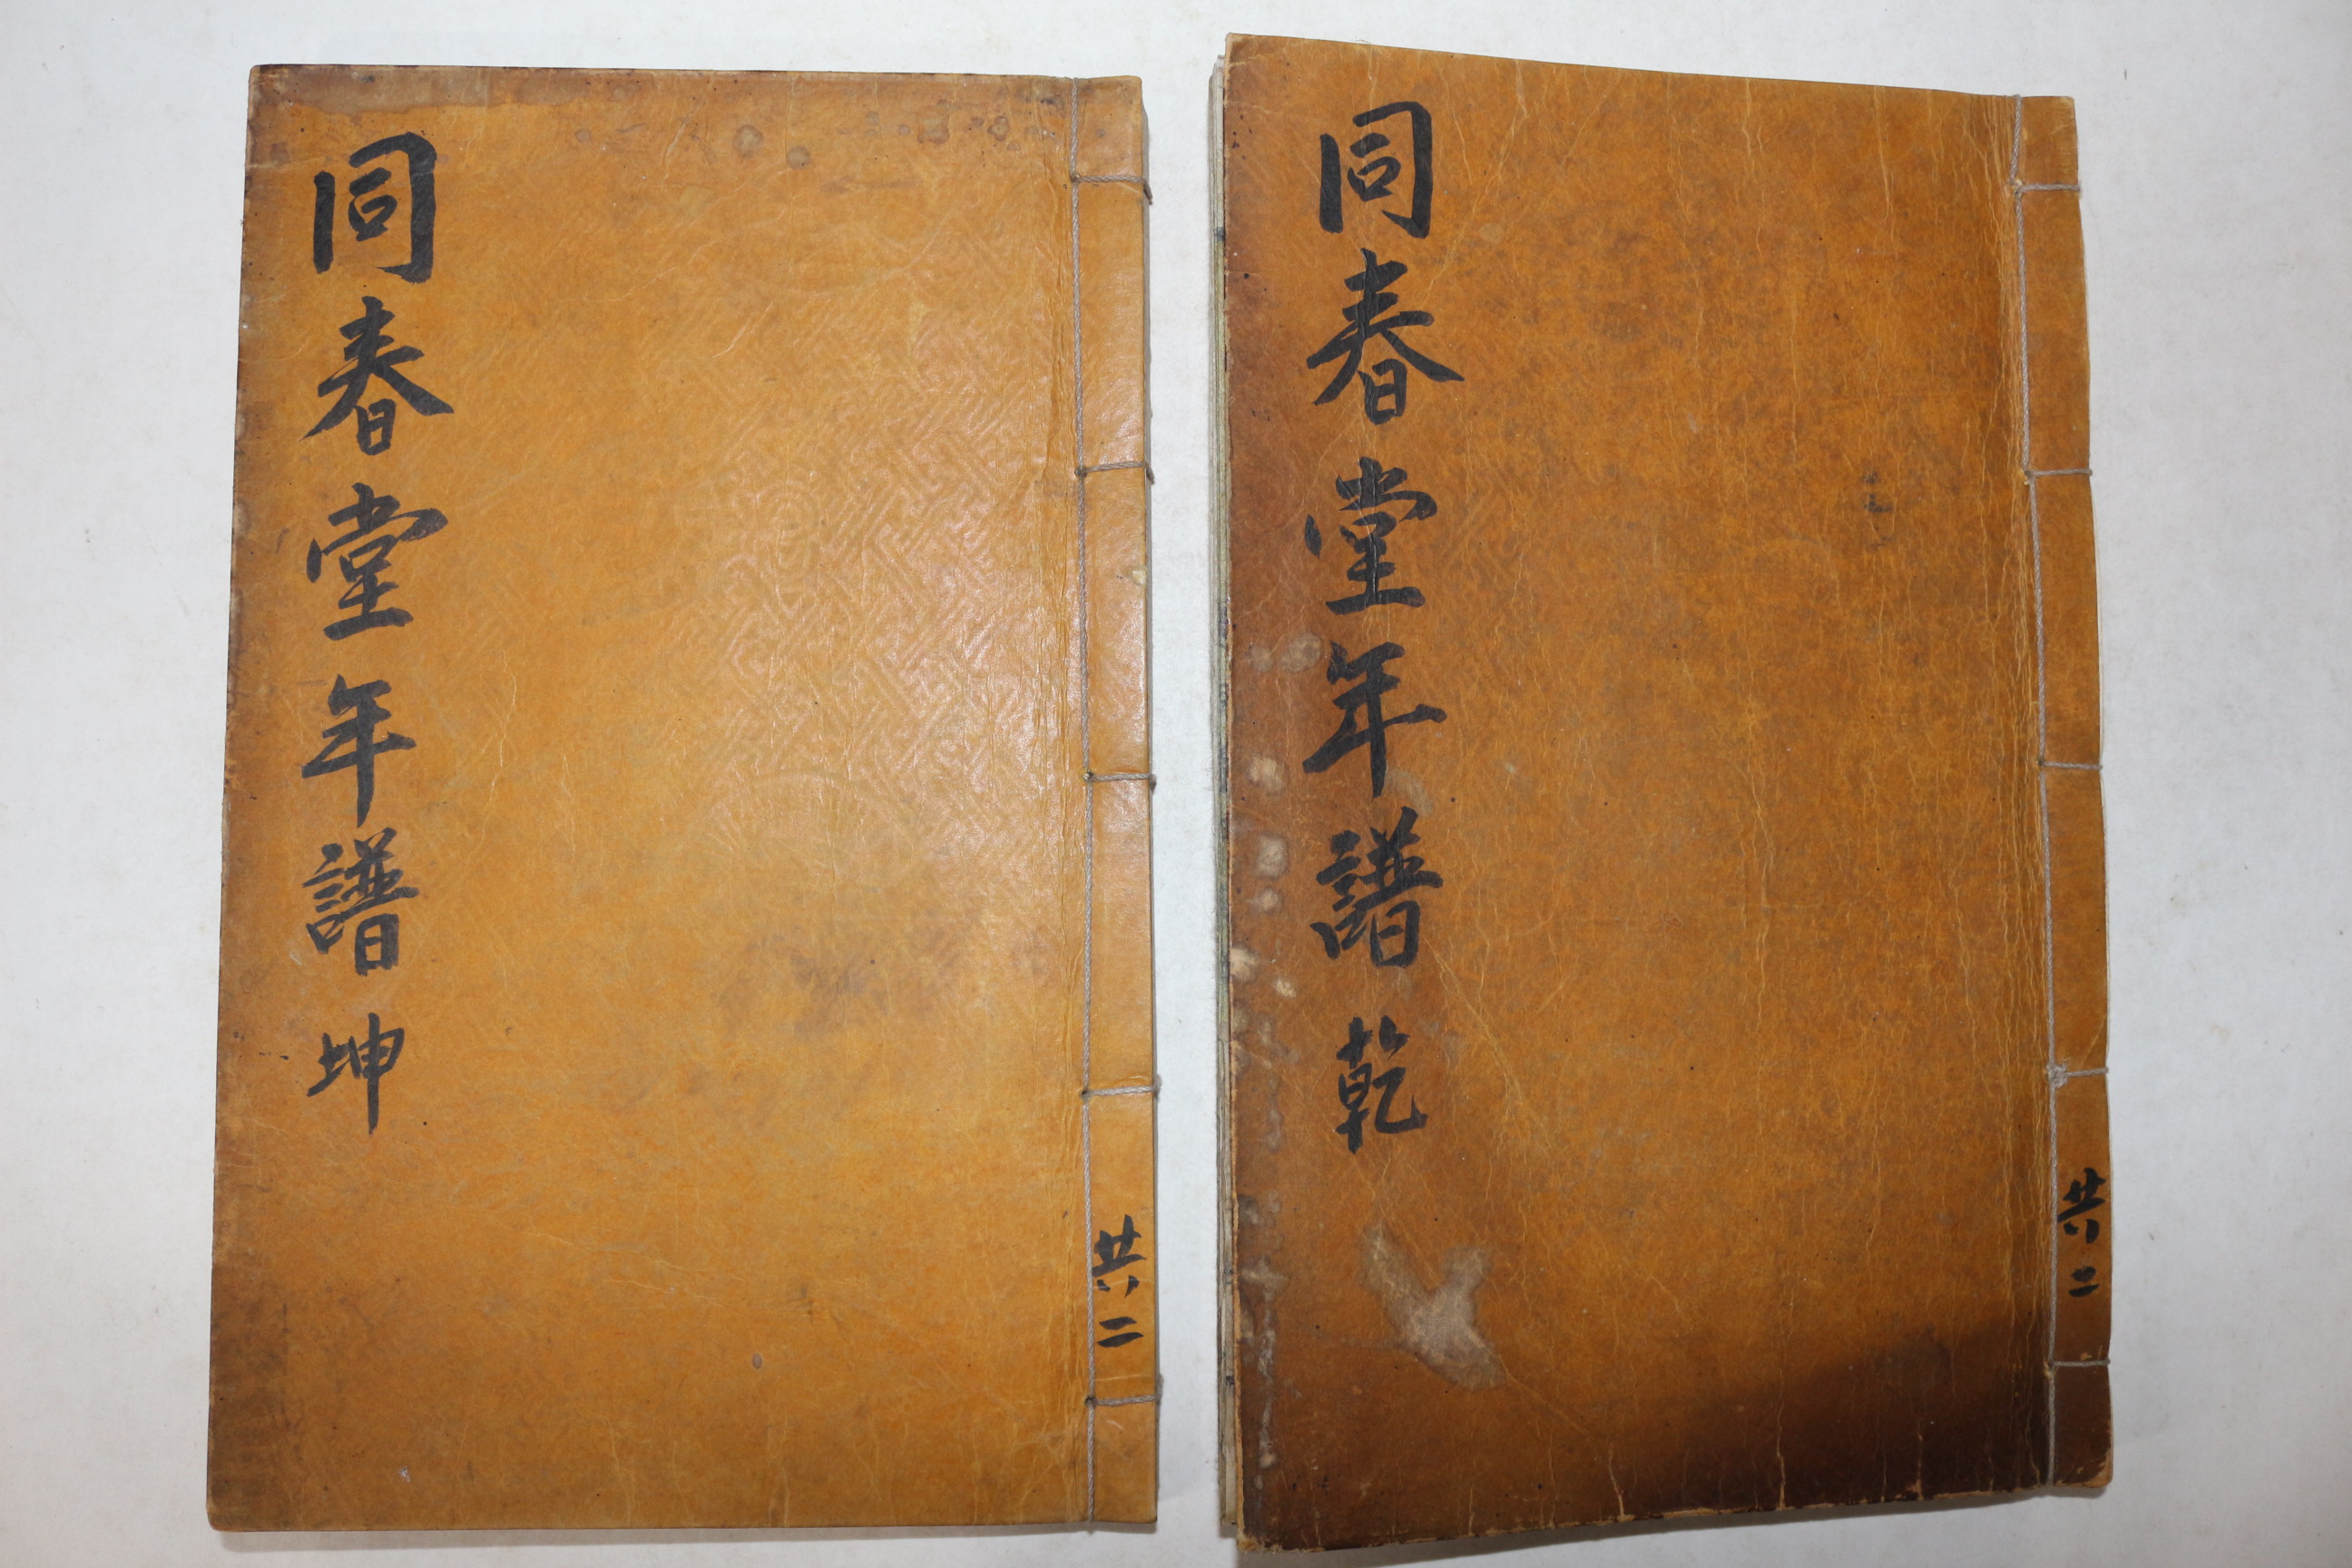 同春堂年譜 乾
共二
同春堂年譜 坤
共二